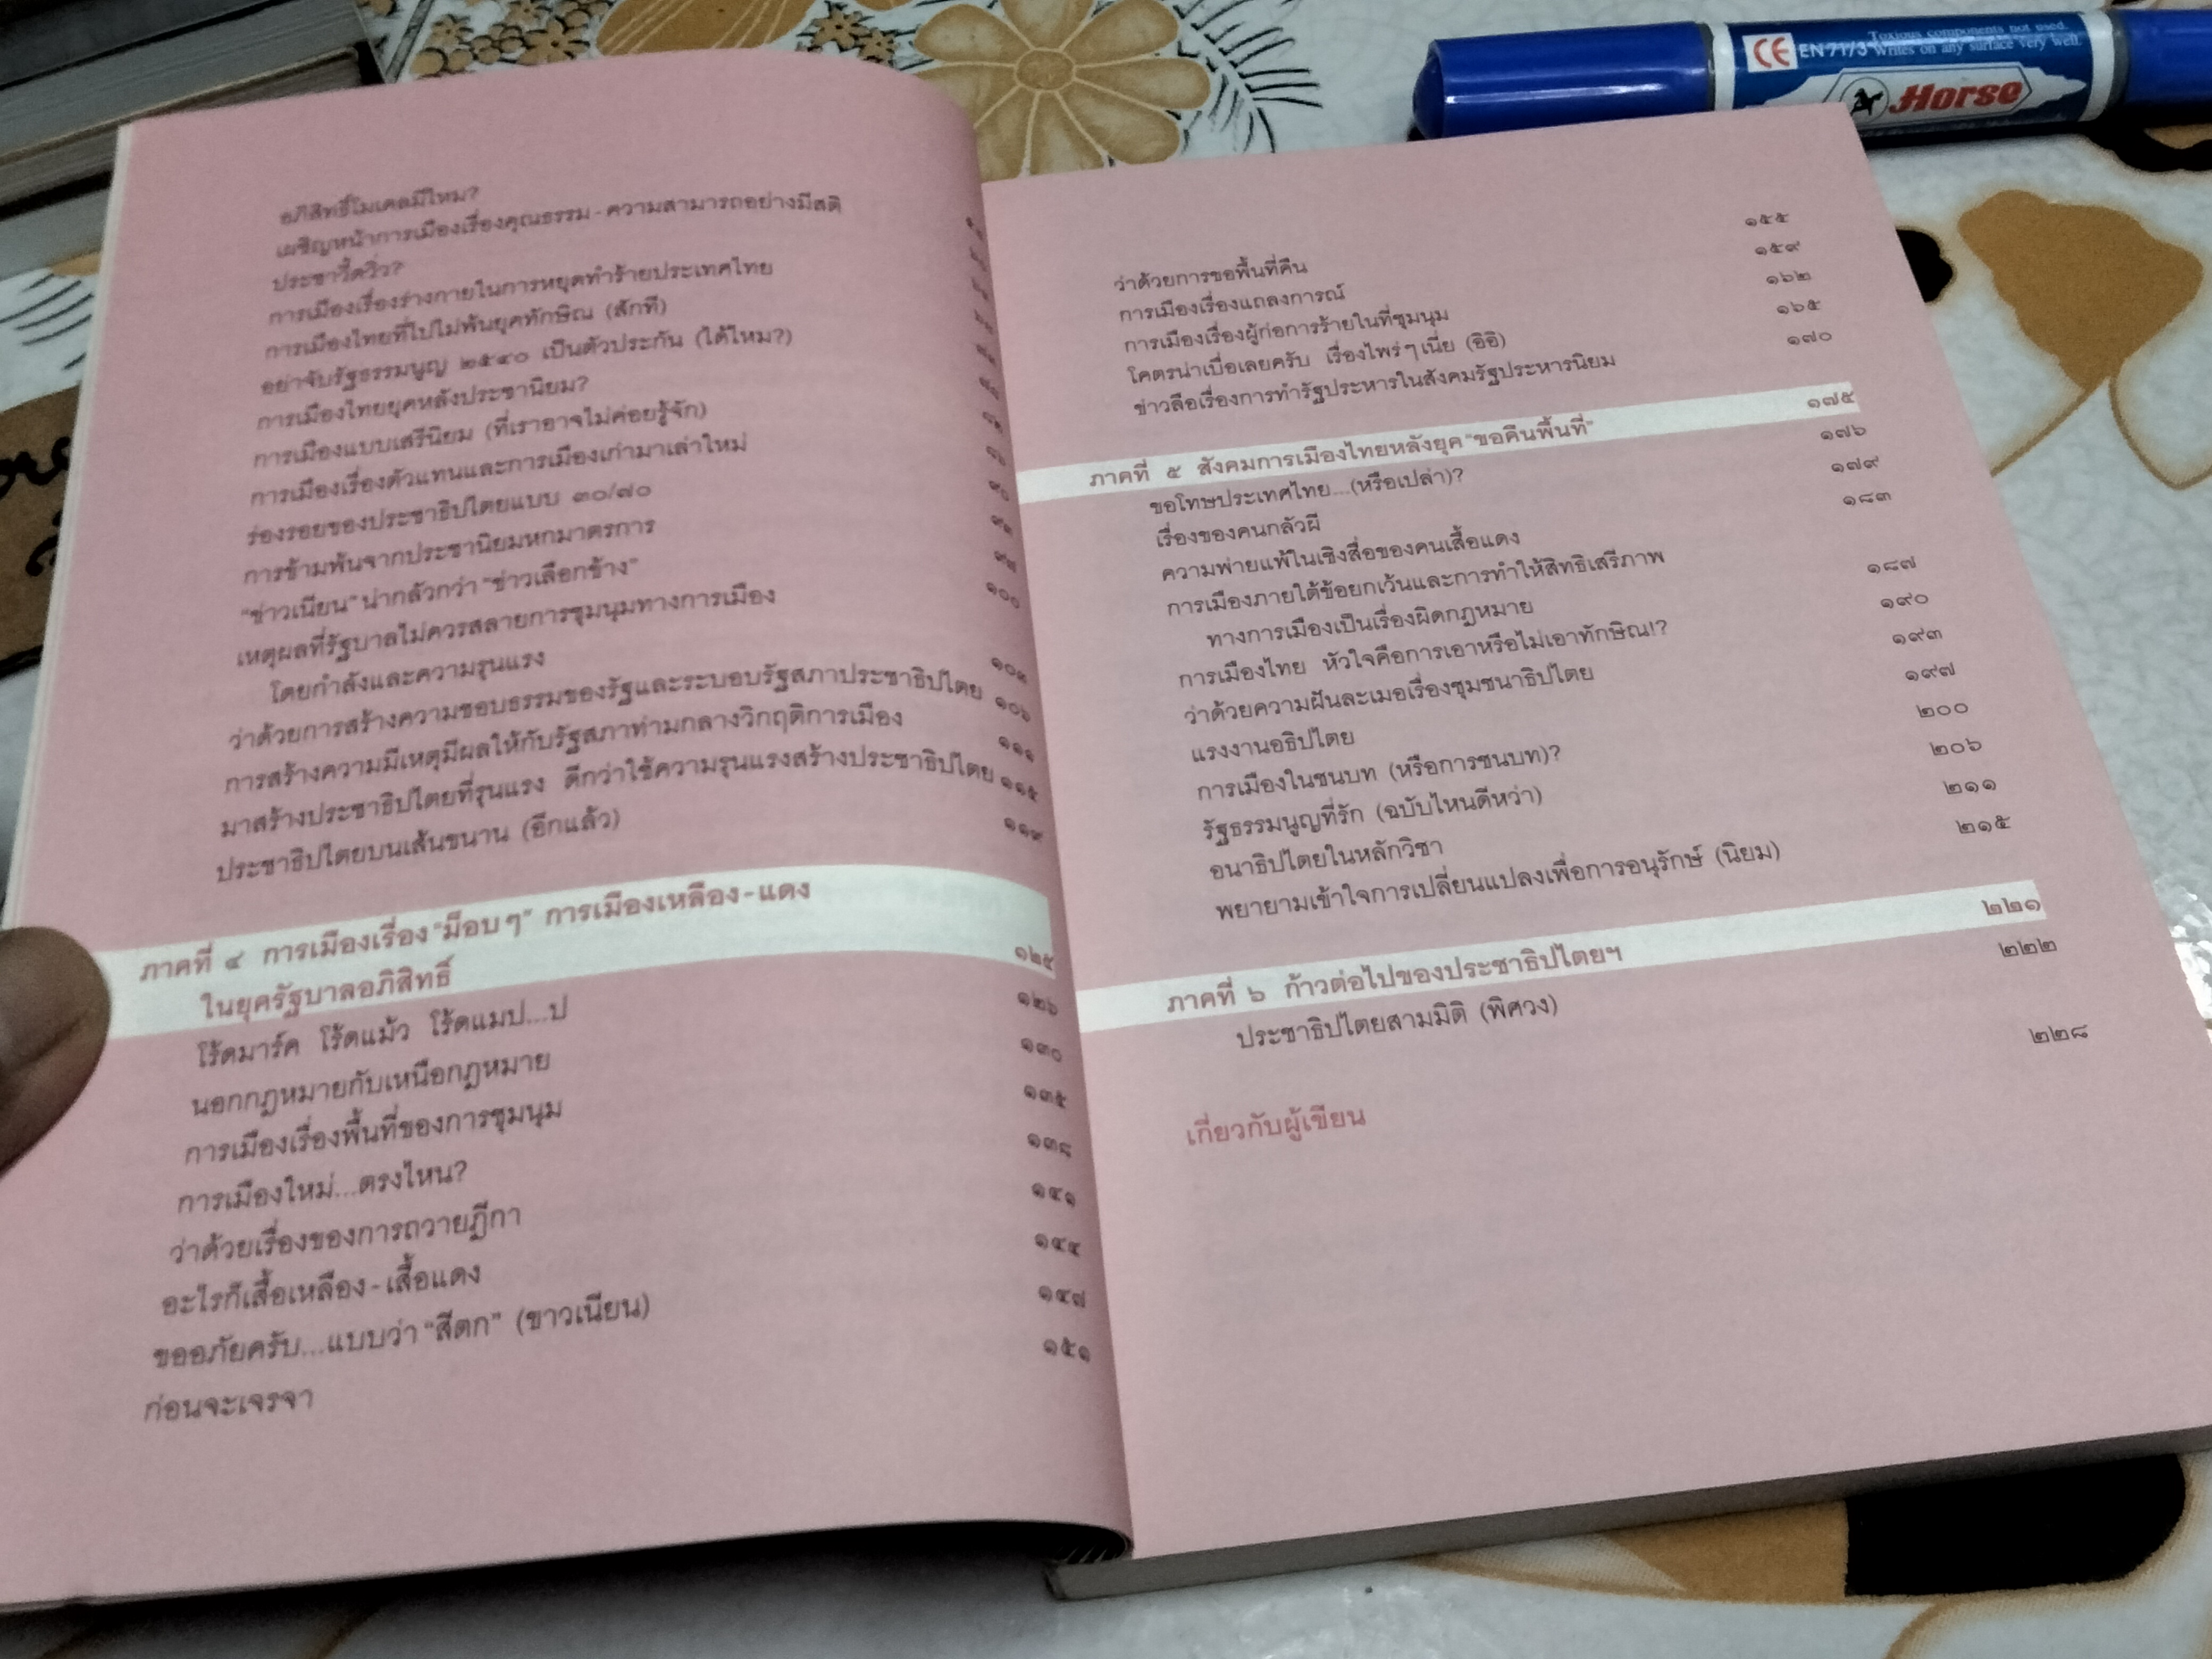 อภิสิทธิ์โมเดลมีไหม?
เผชิญหน้าการเมืองเรื่องคุณธรรม - ความสามารถอย่างมีสติ
ประชาวี้ดวิ่ว?
การเมืองเรื่องร่างกายในการหยุดทำร้ายประเทศไทย
การเมืองไทยที่ไปไม่พ้นยุคทักษิณ (สักที)
อย่าจับรัฐธรรมนูญ ๒๕๔๐ เป็นตัวประกัน (ได้ไหม?)
การเมืองไทยยุคหลังประชานิยม?
การเมืองแบบเสรีนิยม (ที่เราอาจไม่ค่อยรู้จัก)
การเมืองเรื่องตัวแทนและการเมืองเก่ามาเล่าใหม่
ร่องรอยของประชาธิปไตยแบบ ๓๐/๗๐
การข้ามพ้นจากประชานิยมหกมาตรการ
"ข่าวเนียน" น่ากลัวกว่า "ข่าวเลือกข้าง" ๑๐๐
เหตุผลที่รัฐบาลไม่ควรสลายการชุมนุมทางการเมือง
โดยกำลังและความรุนแรง ๑๐๓
ว่าด้วยการสร้างความชอบธรรมของรัฐและระบอบรัฐสภาประชาธิปไตย ๑๐๖
การสร้างความมีเหตุมีผลให้กับรัฐสภาท่ามกลางวิกฤติการเมือง ๑๑๑
มาสร้างประชาธิปไตยที่รุนแรง ดีกว่าใช้ความรุนแรงสร้างประชาธิปไตย ๑๑๕
ประชาธิปไตยบนเส้นขนาน (อีกแล้ว) ๑๑๙
ภาคที่ ๔ การเมืองเรื่อง "ม็อบๆ" การเมืองเหลือง - แดง
ในยุครัฐบาลอภิสิทธิ์ ๑๒๕
โร้ดมาร์ค โร้ดแม้ว โร้ดแมป...ป ๑๒๖
นอกกฎหมายกับเหนือกฎหมาย ๑๓๐
การเมืองเรื่องพื้นที่ของการชุมนุม ๑๓๕
การเมืองใหม่...ตรงไหน? ๑๓๘
ว่าด้วยเรื่องของการถวายฎีกา ๑๔๑
อะไรก็เสื้อเหลือง - เสื้อแดง ๑๔๔
ขออภัยครับ...แบบว่า "สีตก" (ขาวเนียน) ๑๔๗
ก่อนจะเจรจา ๑๕๑
ว่าด้วยการขอพื้นที่คืน ๑๕๕
การเมืองเรื่องแถลงการณ์ ๑๕๙
การเมืองเรื่องผู้ก่อการร้ายในที่ชุมนุม ๑๖๒
โคตรน่าเบื่อเลยครับ เรื่องไพร่ๆ เนี่ย (อิอิ) ๑๖๕
ข่าวลือเรื่องการทำรัฐประหารในสังคมรัฐประหารนิยม ๑๗๐
ภาคที่ ๕ สังคมการเมืองไทยหลังยุค "ขอคืนพื้นที่" ๑๗๕
ขอโทษประเทศไทย...(หรือเปล่า)? ๑๗๖
เรื่องของคนกลัวผี ๑๗๙
ความพ่ายแพ้ในเชิงสื่อของคนเสื้อแดง ๑๘๓
การเมืองภายใต้ข้อยกเว้นและการทำให้สิทธิเสรีภาพ
ทางการเมืองเป็นเรื่องผิดกฎหมาย ๑๘๗
การเมืองไทย หัวใจคือการเอาหรือไม่เอาทักษิณ!? ๑๙๐
ว่าด้วยความฝันละเมอเรื่องชุมชนาธิปไตย ๑๙๓
แรงงานอธิปไตย ๑๙๗
การเมืองในชนบท (หรือการชนบท)? ๒๐๐
รัฐธรรมนูญที่รัก (ฉบับไหนดีหว่า) ๒๐๖
อนาธิปไตยในหลักวิชา ๒๑๑
พยายามเข้าใจการเปลี่ยนแปลงเพื่อการอนุรักษ์ (นิยม) ๒๑๕
ภาคที่ ๖ ก้าวต่อไปของประชาธิปไตยฯ ๒๒๑
ประชาธิปไตยสามมิติ (พิศวง) ๒๒๒
เกี่ยวกับผู้เขียน ๒๒๘
CE EN 71/3 Toxious components not used.
Writes on any surface very well.
Horse